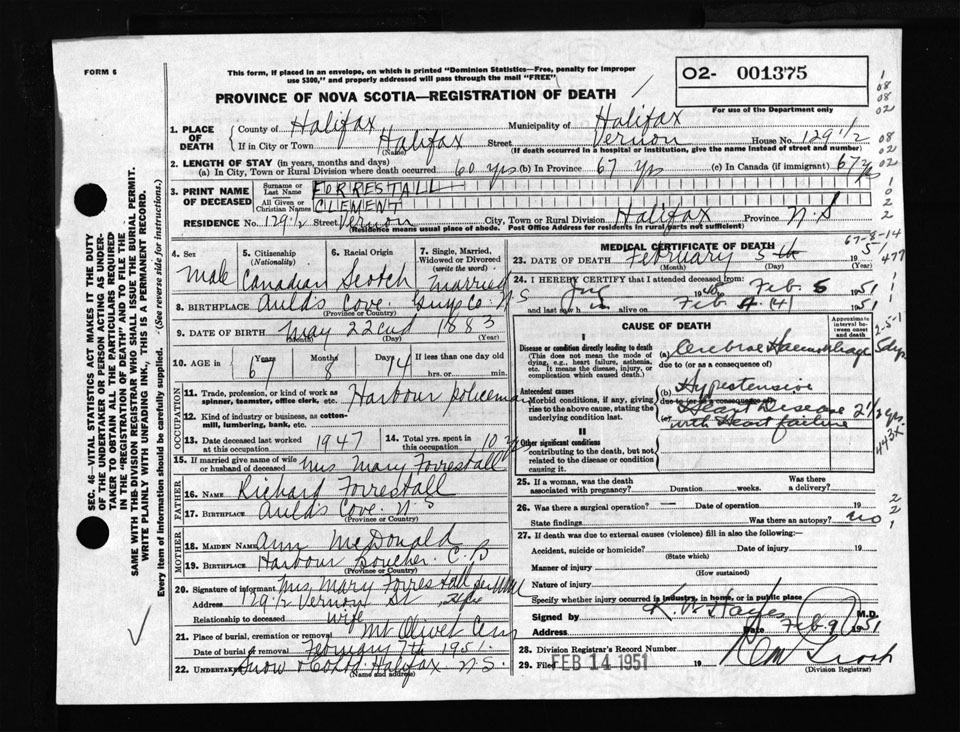 FORM 6
This form, if placed in an envelope, on which is printed "Dominion Statistics—Free, penalty for improper
use $300," and properly addressed will pass through the mail "FREE"
O2- 001375
PROVINCE OF NOVA SCOTIA—REGISTRATION OF DEATH
For use of the Department only
1. PLACE OF DEATH County of Halifax Municipality of Halifax
If in City or Town Halifax (Name) Street Vernon House No. 129 1/2
(If death occurred in a hospital or institution, give the name instead of street and number)
2. LENGTH OF STAY (in years, months and days)
(a) In City, Town or Rural Division where death occurred 60 yrs (b) In Province 67 yrs (c) In Canada (if immigrant) 67 yrs
3. PRINT NAME OF DECEASED Surname or Last Name FORRESTALL
All Given or Christian Names CLEMENT
RESIDENCE No. 129 1/2 Street Vernon City, Town or Rural Division Halifax Province N.S
(Residence means usual place of abode. Post Office Address for residents in rural parts not sufficient)
4. Sex Male
5. Citizenship (Nationality) Canadian
6. Racial Origin Scotch
7. Single, Married, Widowed or Divorced (write the word) Married
8. BIRTHPLACE Aulds Cove Guys Co. N S
(Province or Country)
9. DATE OF BIRTH May 22nd 1883
(Month) (Day) (Year)
10. AGE in 67 Years 8 Months 14 Days If less than one day old
hrs. or min.
OCCUPATION
11. Trade, profession, or kind of work as spinner, teamster, office clerk, etc. Harbour policeman
12. Kind of industry or business, as cotton-mill, lumbering, bank, etc.
13. Date deceased last worked at this occupation 1947
14. Total yrs. spent in this occupation 10 yrs
15. If married give name of wife or husband of deceased Mrs Mary Forrestall
FATHER
16. Name Richard Forrestall
17. Birthplace Aulds Cove N S
(Province or Country)
MOTHER
18. Maiden Name Ann McDonald
19. Birthplace Harbour Boucher C.B
(Province or Country)
20. Signature of informant Mrs Mary Forrestall
Address 129 1/2 Vernon St Hfx
Relationship to deceased wife
21. Place of burial, cremation or removal Mt Olivet Cem
Date of burial or removal February 7th 1951.
22. Undertaker Snow & Co Ltd Halifax N.S.
(Name and address)
MEDICAL CERTIFICATE OF DEATH
67-8-14
23. DATE OF DEATH February 5th 1951
(Month) (Day)
477
24. I HEREBY CERTIFY that I attended deceased from:
1948 Feb. 5 1951
and last saw h alive on Feb. 4 1951
CAUSE OF DEATH
Approximate interval between onset and death
I
Disease or condition directly leading to death
(This does not mean the mode of dying, e.g., heart failure, asthenia, etc. It means the disease, injury, or complication which caused death.)
(a) Cerebral Haemorrhage 5 days
due to (or as a consequence of)
Antecedent causes
Morbid conditions, if any, giving rise to the above cause, stating the underlying condition last.
(b) Hypertensive
due to (or as a consequence of)
(c) Heart Disease 2 1/2 yrs
with Heart failure
443X
II
Other significant conditions
contributing to the death, but not related to the disease or condition causing it.
25. If a woman, was the death associated with pregnancy? Duration weeks. Was there a delivery?
26. Was there a surgical operation? — Date of operation 19
State findings Was there an autopsy? no
27. If death was due to external causes (violence) fill in also the following:
Accident, suicide or homicide? Date of injury 19
(State which)
Manner of injury
(How sustained)
Nature of injury
Specify whether injury occurred in industry, in home, or in public place
Signed by Hayes M.D.
Address Date Feb 9 1951
28. Division Registrar's Record Number
29. Filed FEB 14 1951 19
(Division Registrar)
SEC. 46—VITAL STATISTICS ACT MAKES IT THE DUTY
OF THE UNDERTAKER OR PERSON ACTING AS UNDER-
TAKER TO OBTAIN ALL THE PARTICULARS REQUIRED
IN THE "REGISTRATION OF DEATH" AND TO FILE THE
SAME WITH THE DIVISION REGISTRAR WHO SHALL ISSUE THE BURIAL PERMIT.
WRITE PLAINLY WITH UNFADING INK, THIS IS A PERMANENT RECORD.
Every item of information should be carefully supplied. (See reverse side for instructions.)